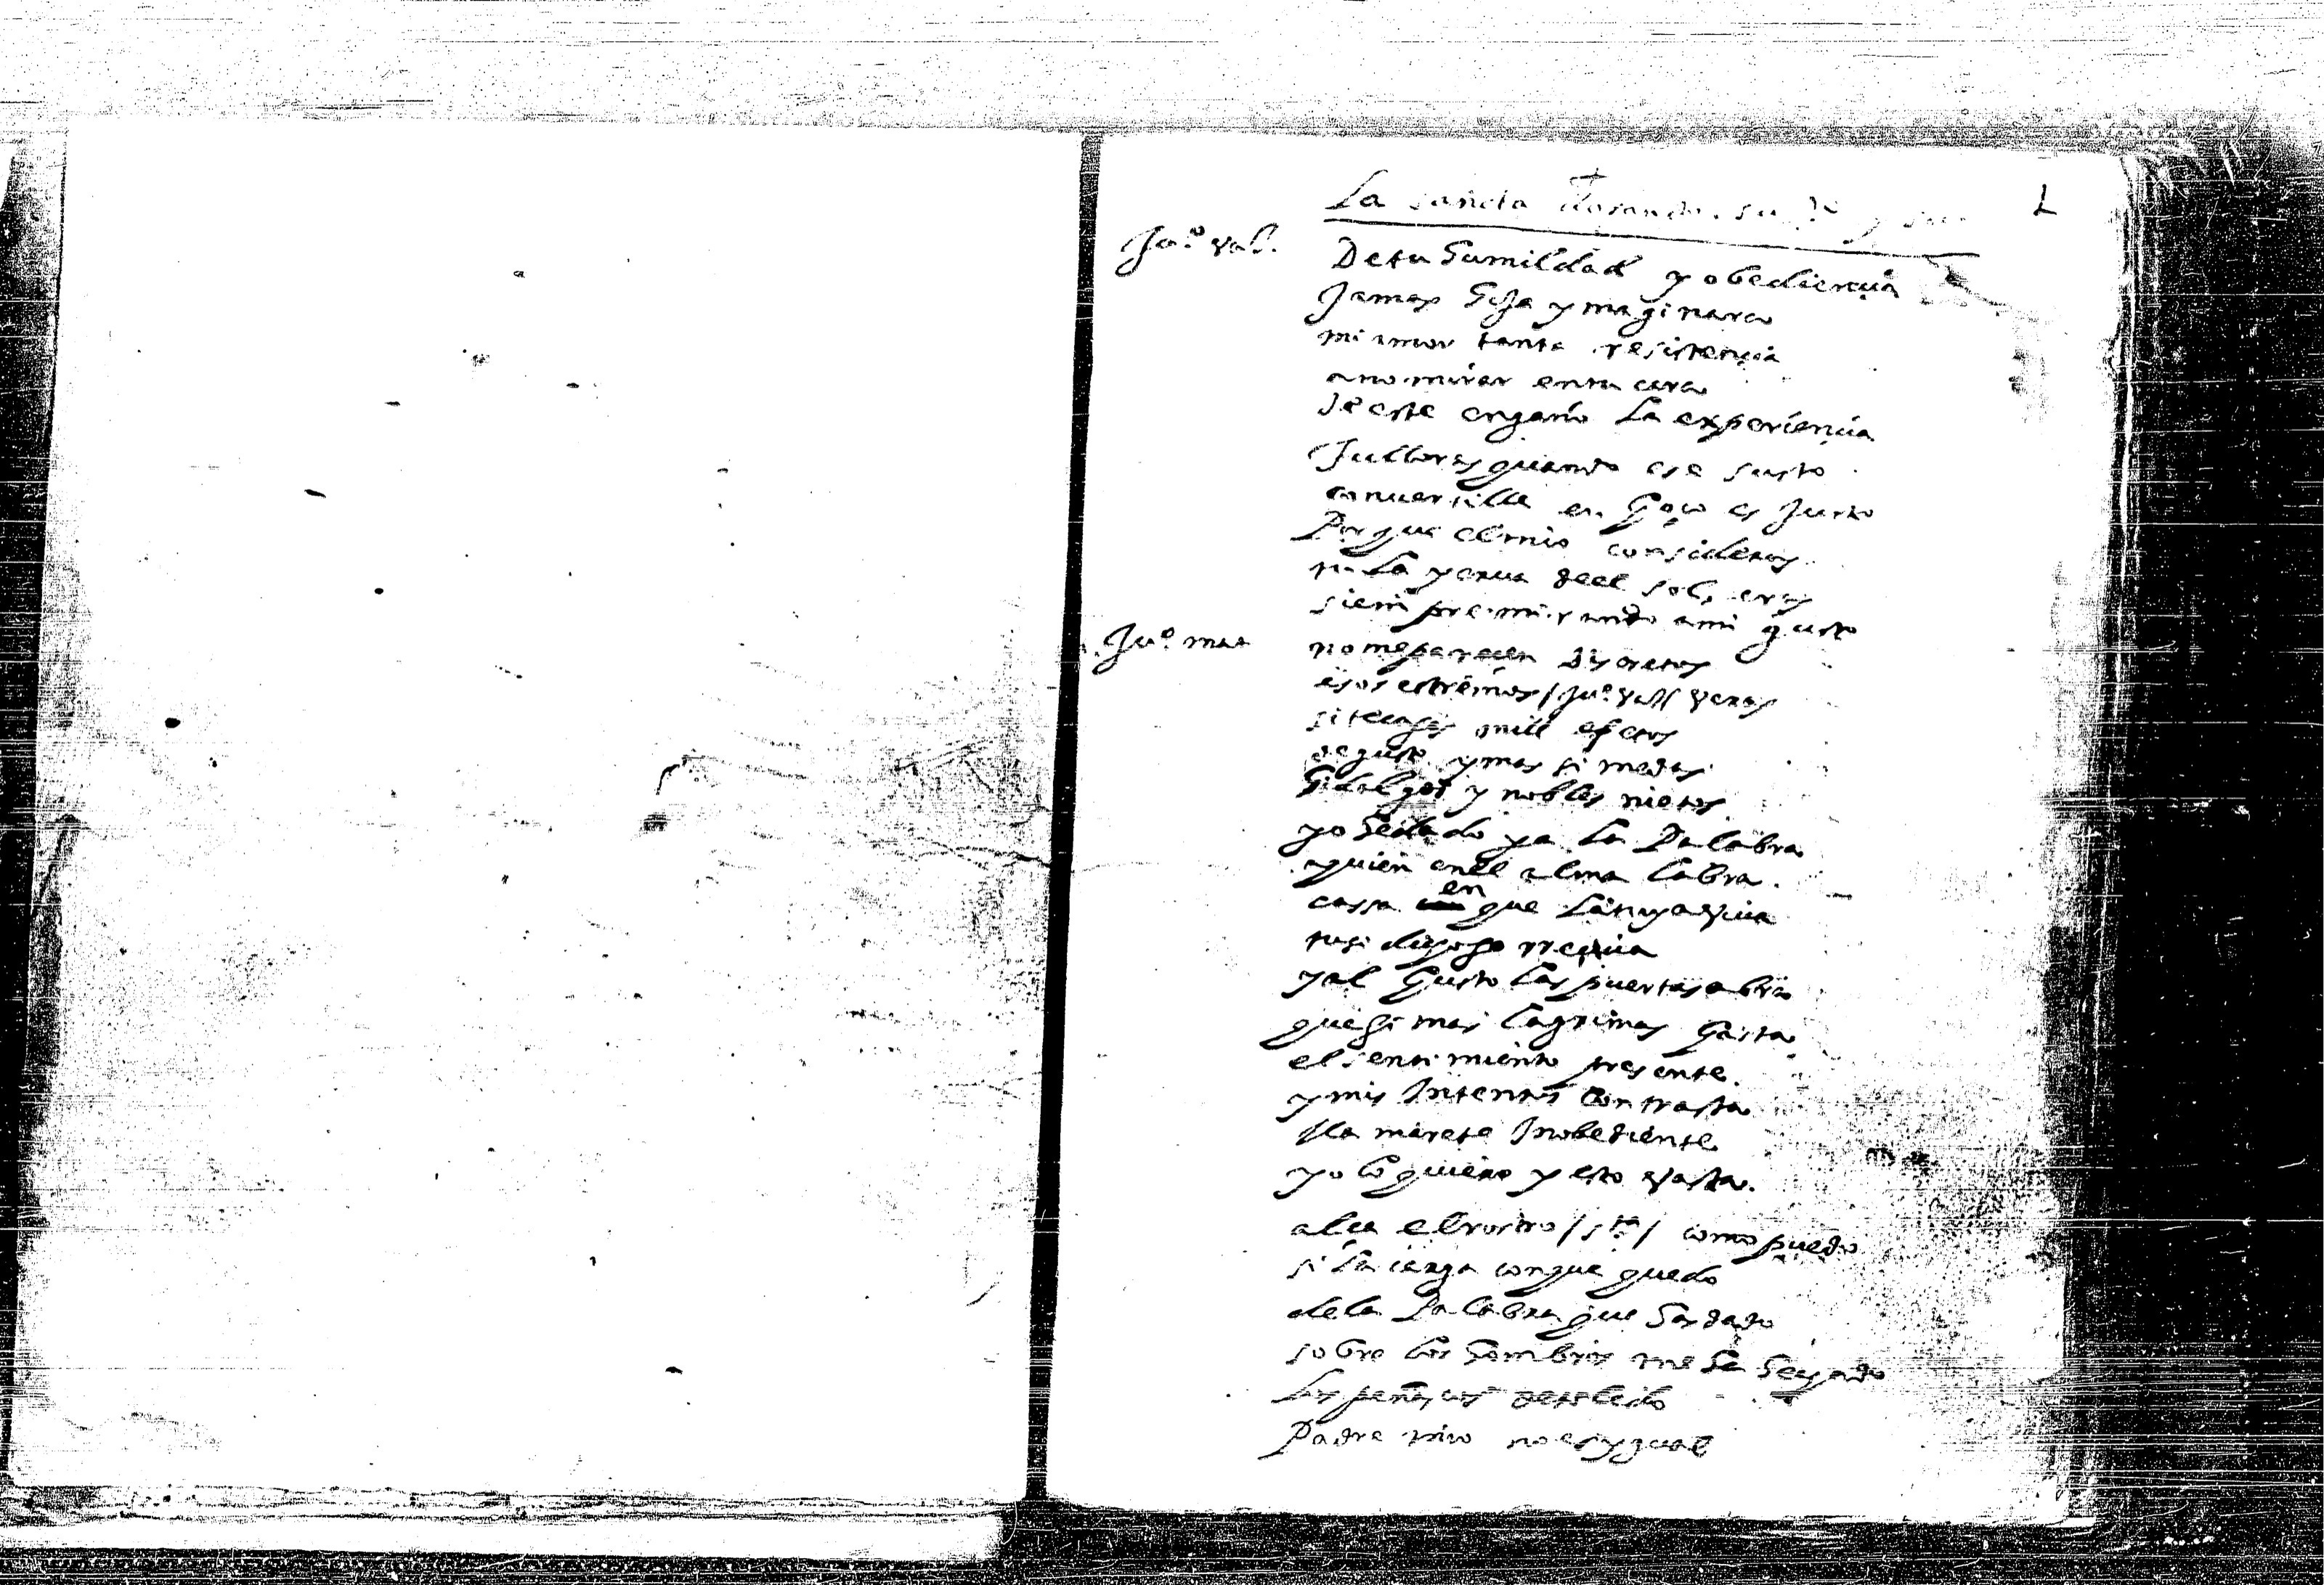 La sancta llorando. su
L
Ju.º val.
De tu humildad y obediencia
Jamas hija ymaginara
mi amor tanta resistencia
a no mirar en tu cara
de este engaño la experiencia
Tu lloras quando ese susto
conuertille en goço es Justo
Porque el mio consideras
la yerua de el sol, eras
siempre mirando a mi gusto
Ju.º mat
no me parecen discretos
esos estremos / Ju.º val / veras
si te casas mill efetos
de gusto y mas si me das
hidalgos y nobles nietos
yo he dado ya la Palabra
a quien en el alma labra.
cassa en que la tuya viua
rreciua
y al gusto las puertas abra
que si mas lagrimas gasta
el sentimiento presente.
y mis Intentos contrasta
llamarete Inobediente
yo lo quiero y esto vasta.
alça el rostro / s.ta / como puedo
si la carga con que quedo
de la Palabra que has dado
sobre los hombros me ha hechado
los peñascos de toledo
Padre mio no es ygual